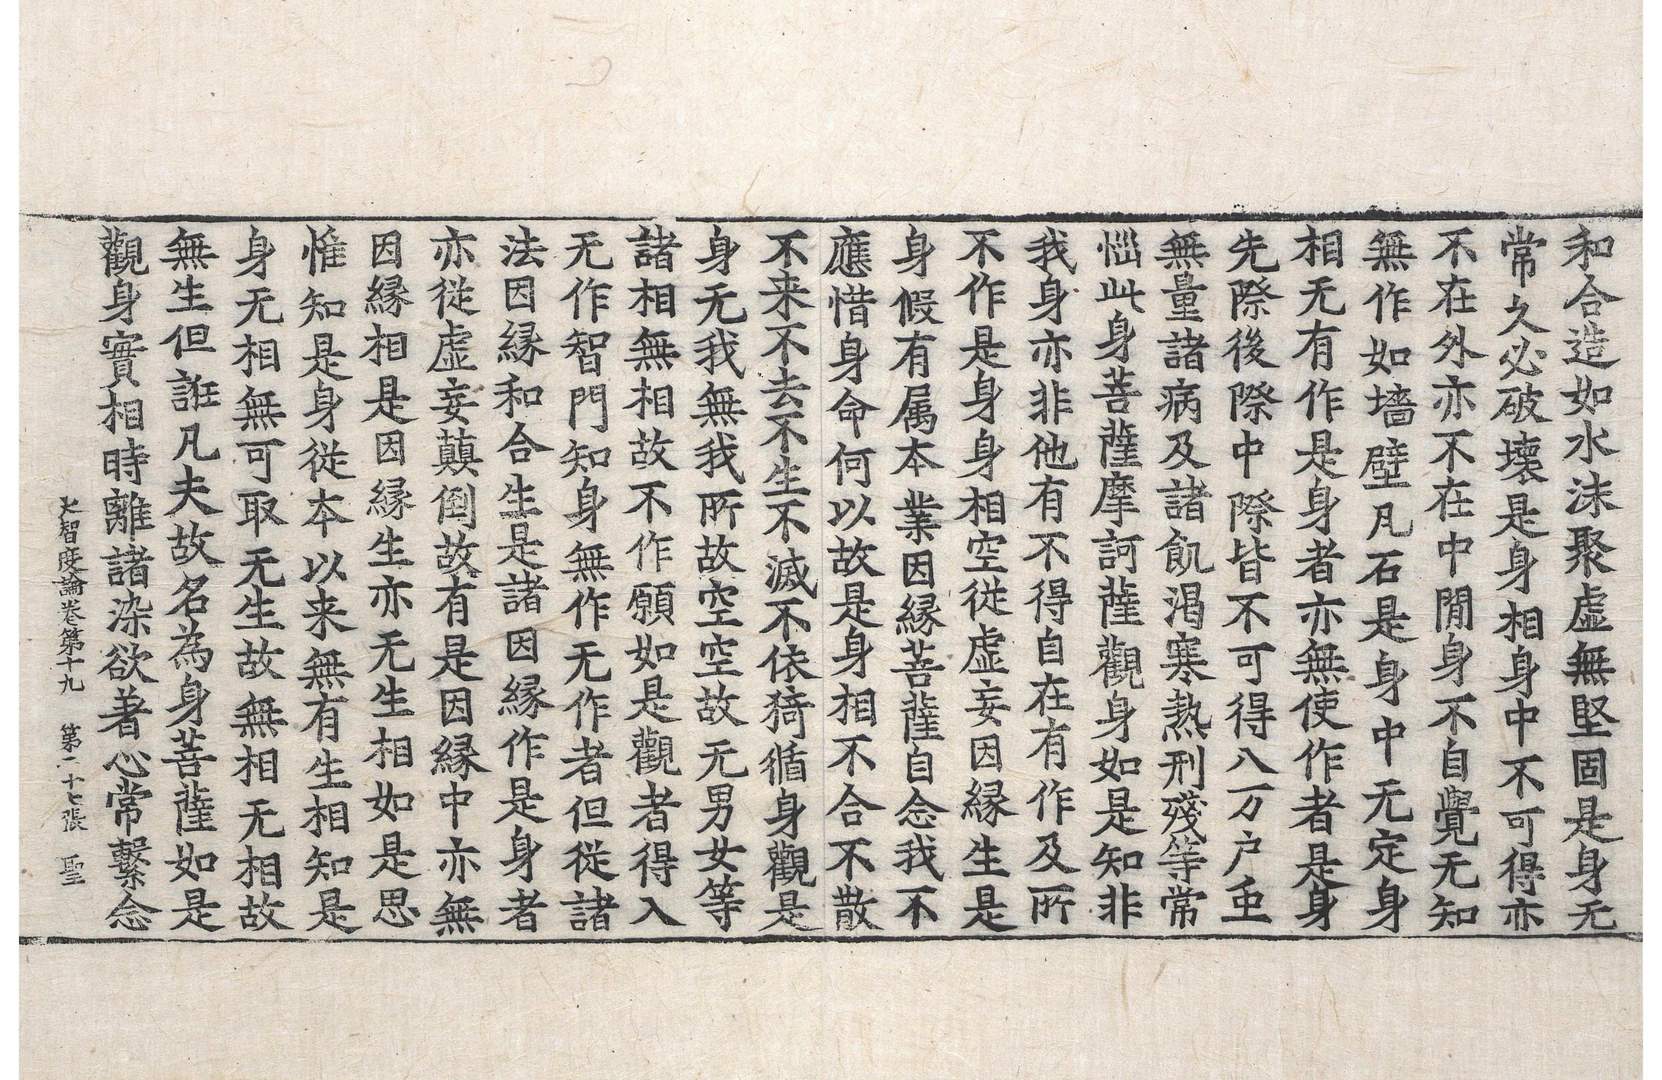 和合造如水沫聚虛無堅固是身无
常久必破壞是身相身中不可得亦
不在外亦不在中閒身不自覺无知
無作如墻壁凡石是身中无定身
相无有作是身者亦無使作者是身
先際後際中際皆不可得八万户虫
無量諸病及諸飢渴寒熱刑殘等常
惱此身菩薩摩訶薩觀身如是知非
我身亦非他有不得自在有作及所
不作是身身相空從虛妄因緣生是
身假有属本業因緣菩薩自念我不
應惜身命何以故是身相不合不散
不来不去不生不滅不依猗循身觀是
身无我無我所故空空故无男女等
諸相無相故不作願如是觀者得入
无作智門知身無作无作者但從諸
法因緣和合生是諸因緣作是身者
亦從虛妄顛倒故有是因緣中亦無
因緣相是因緣生亦无生相如是思
惟知是身從本以来無有生相知是
身无相無可取无生故無相无相故
無生但誑凡夫故名為身菩薩如是
觀身實相時離諸染欲著心常繫念
大智度論卷第十九 第二十七張 聖